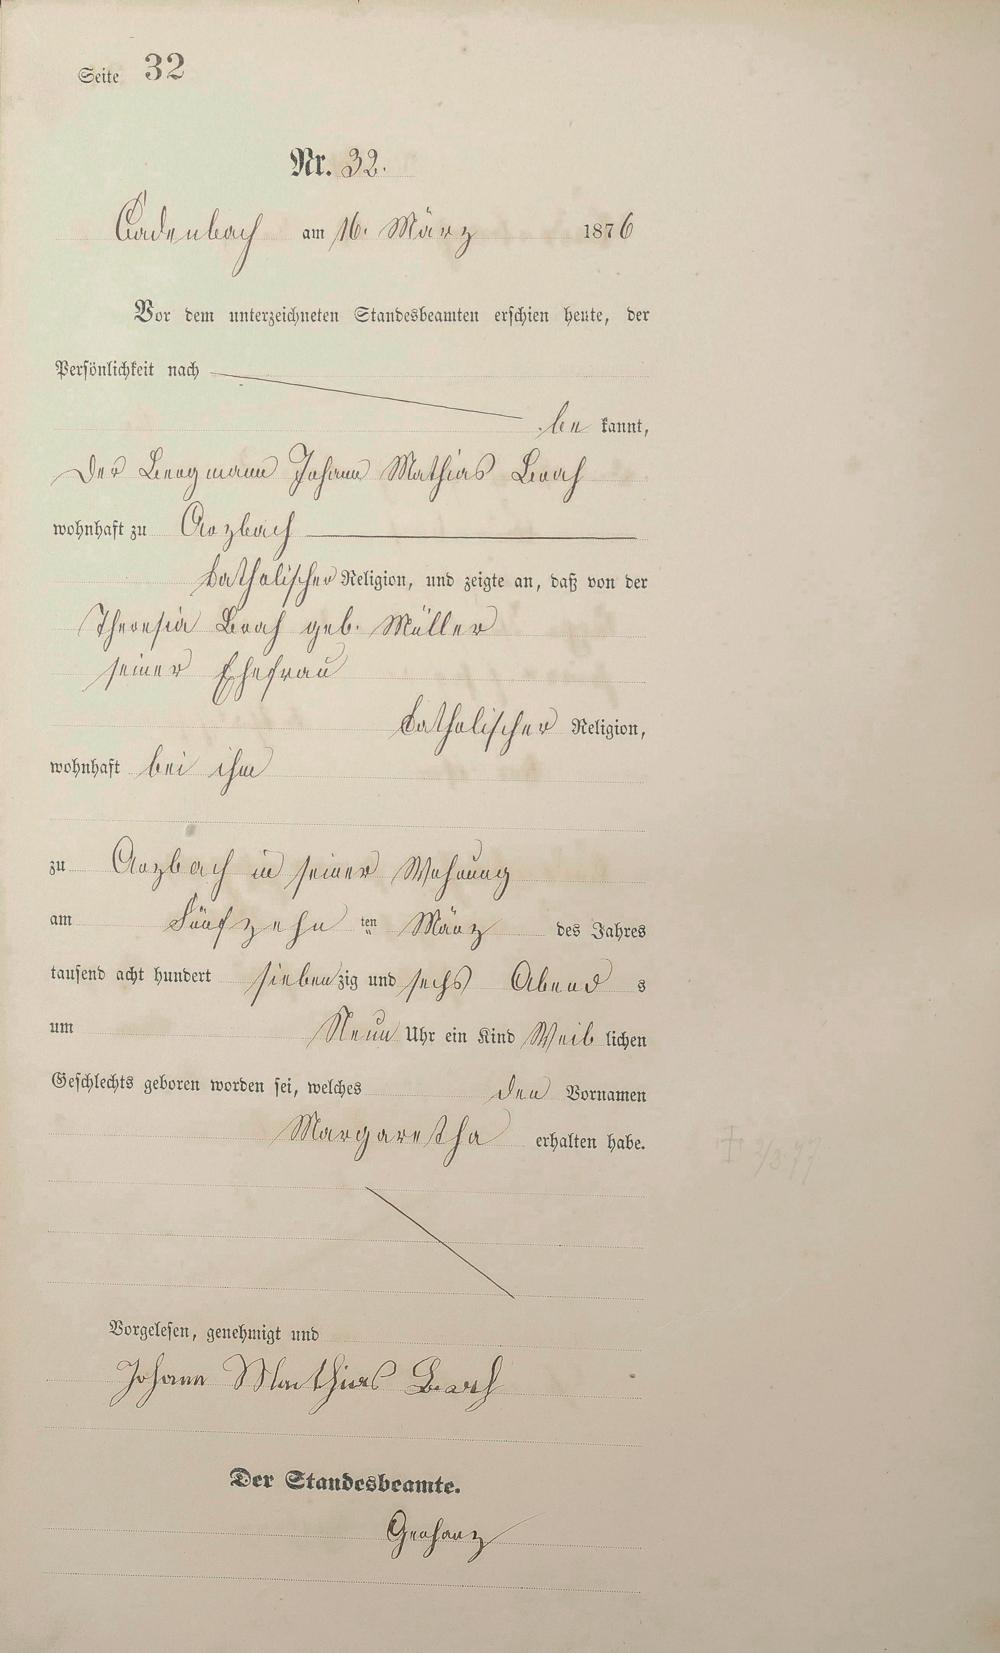 Seite 32
Nr. 32.
Cadenbach am 16. März 1876
Vor dem unterzeichneten Standesbeamten erschien heute, der
Persönlichkeit nach
be kannt,
der Bergmann Johann Mathias Brah
wohnhaft zu Arzbach
katholischer Religion, und zeigte an, daß von der
Theresia Brah geb. Müller
seiner Ehefrau
katholischer Religion,
wohnhaft bei ihm
zu Arzbach in seiner Wohnung
am Fünfzehn ten März des Jahres
tausend acht hundert siebenzig und sechs Abend s
um Neun Uhr ein Kind Weib lichen
Geschlechts geboren worden sei, welches den Vornamen
Margaretha erhalten habe.
† 2/3.77
Vorgelesen, genehmigt und
Johann Mathias
Der Standesbeamte.
Gerharz